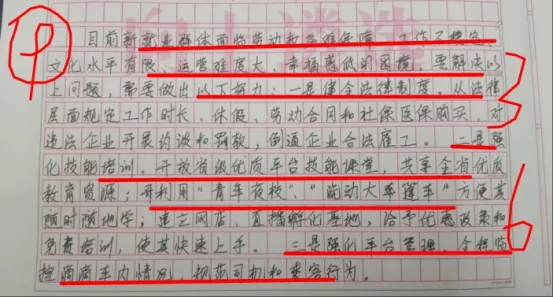 目前新就业群体面临劳动权益难保障、工作不稳定、
文化水平有限、运营难度大、幸福感低的困境。要解决以
上问题，需要做出以下努力：一是健全法律制度。从法律
层面规定工作时长、休假、劳动合同和社保医保购买，对
违法企业开展约谈和罚款，倒逼企业合法雇工。二是强
化技能培训。开放省级优质平台技能课堂，共享全省优质
教育资源；开利用“青年夜校”、“流动大车篷车”方便其
随时随地学；建立网店、直播孵化基地，给予优惠政策和
免费培训，使其快速上手。三是强化平台管理，全程监
控 车内情况，规范司机和乘客行为。